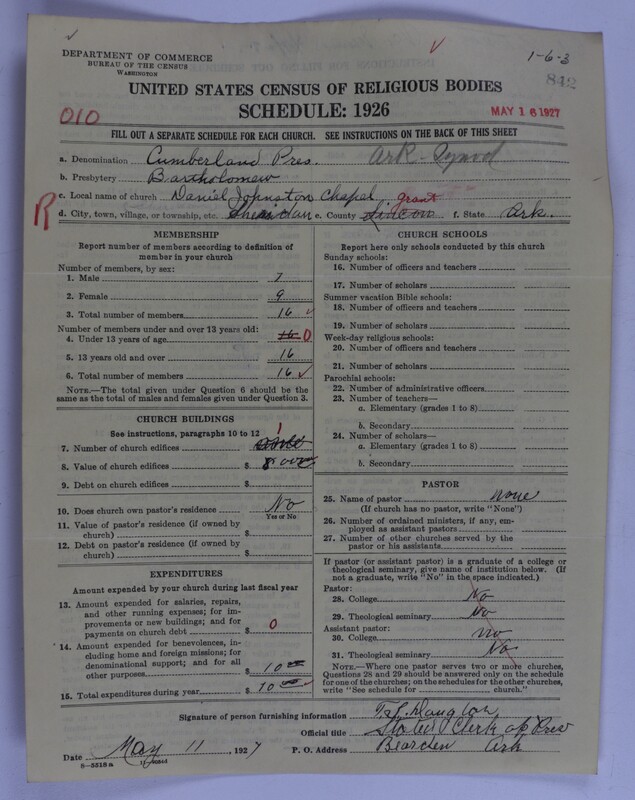 1-6-3
842
DEPARTMENT OF COMMERCE
BUREAU OF THE CENSUS
WASHINGTON
UNITED STATES CENSUS OF RELIGIOUS BODIES
SCHEDULE: 1926
010
MAY 16 1927
FILL OUT A SEPARATE SCHEDULE FOR EACH CHURCH. SEE INSTRUCTIONS ON THE BACK OF THIS SHEET
a. Denomination Cumberland Pres. Ark-Synod
b. Presbytery Bartholomew
c. Local name of church Daniel Johnston Chapel
R
grant
d. City, town, village, or township, etc. Sheridan e. County Lincoln f. State Ark.
MEMBERSHIP
Report number of members according to definition of
member in your church
Number of members, by sex:
1. Male 7
2. Female 9
3. Total number of members 16
Number of members under and over 13 years old:
4. Under 13 years of age 16 0
5. 13 years old and over 16
6. Total number of members 16
NOTE.—The total given under Question 6 should be the
same as the total of males and females given under Question 3.
CHURCH BUILDINGS
See instructions, paragraphs 10 to 12
7. Number of church edifices 1
8. Value of church edifices $
9. Debt on church edifices $
10. Does church own pastor's residence No
Yes or No
11. Value of pastor's residence (if owned by
church) $
12. Debt on pastor's residence (if owned by
church) $
EXPENDITURES
Amount expended by church during last fiscal year
13. Amount expended for salaries, repairs,
and other running expenses; for im-
provements or new buildings; and for
payments on church debt $ 0
14. Amount expended for benevolences, in-
cluding home and foreign missions; for
denominational support; and for all
other purposes $ 10 00
15. Total expenditures during year $ 10 00
CHURCH SCHOOLS
Report here only schools conducted by this church
Sunday schools:
16. Number of officers and teachers
17. Number of scholars
Summer vacation Bible schools:
18. Number of officers and teachers
19. Number of scholars
Week-day religious schools:
20. Number of officers and teachers
21. Number of scholars
Parochial schools:
22. Number of administrative officers
23. Number of teachers—
a. Elementary (grades 1 to 8)
b. Secondary
24. Number of scholars—
a. Elementary (grades 1 to 8)
b. Secondary
PASTOR
25. Name of pastor none
(If church has no pastor, write "None")
26. Number of ordained ministers, if any, em-
ployed as assistant pastors
27. Number of other churches served by the
pastor or his assistants
If pastor (or assistant pastor) is a graduate of a college or
theological seminary, give name of institution below. (If
not a graduate, write "No" in the space indicated.)
Pastor:
28. College No
29. Theological seminary No
Assistant pastor:
30. College No
31. Theological seminary No
NOTE.—Where one pastor serves two or more churches,
Questions 28 and 29 should be answered only on the schedule
for one of the churches; on the schedules for the other churches,
write "See schedule for church."
Signature of person furnishing information
Official title Stated Clerk of Pres
Date May 11, 1927 P. O. Address Bearden Ark
8-5518a